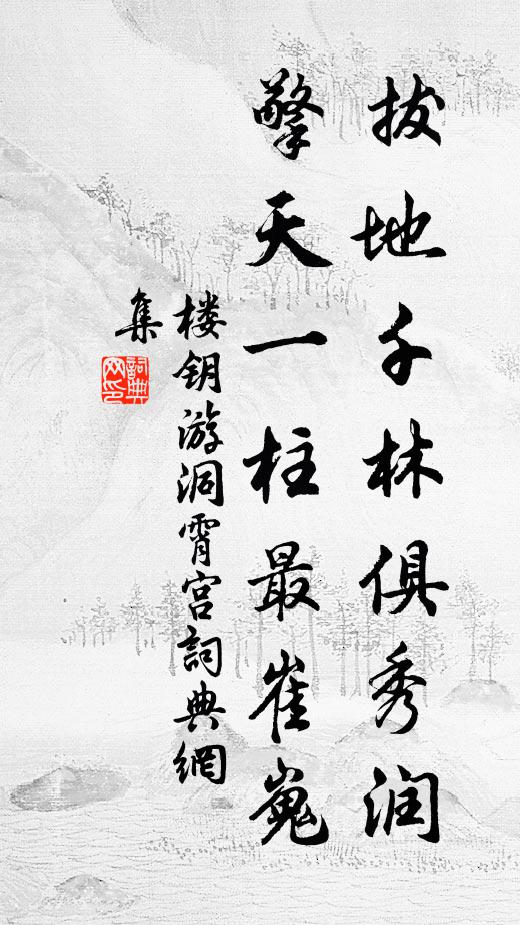 拔地千林俱秀润
擎天一柱最崔嵬
楼钥游洞霄宫詞典網
集
詞典网印